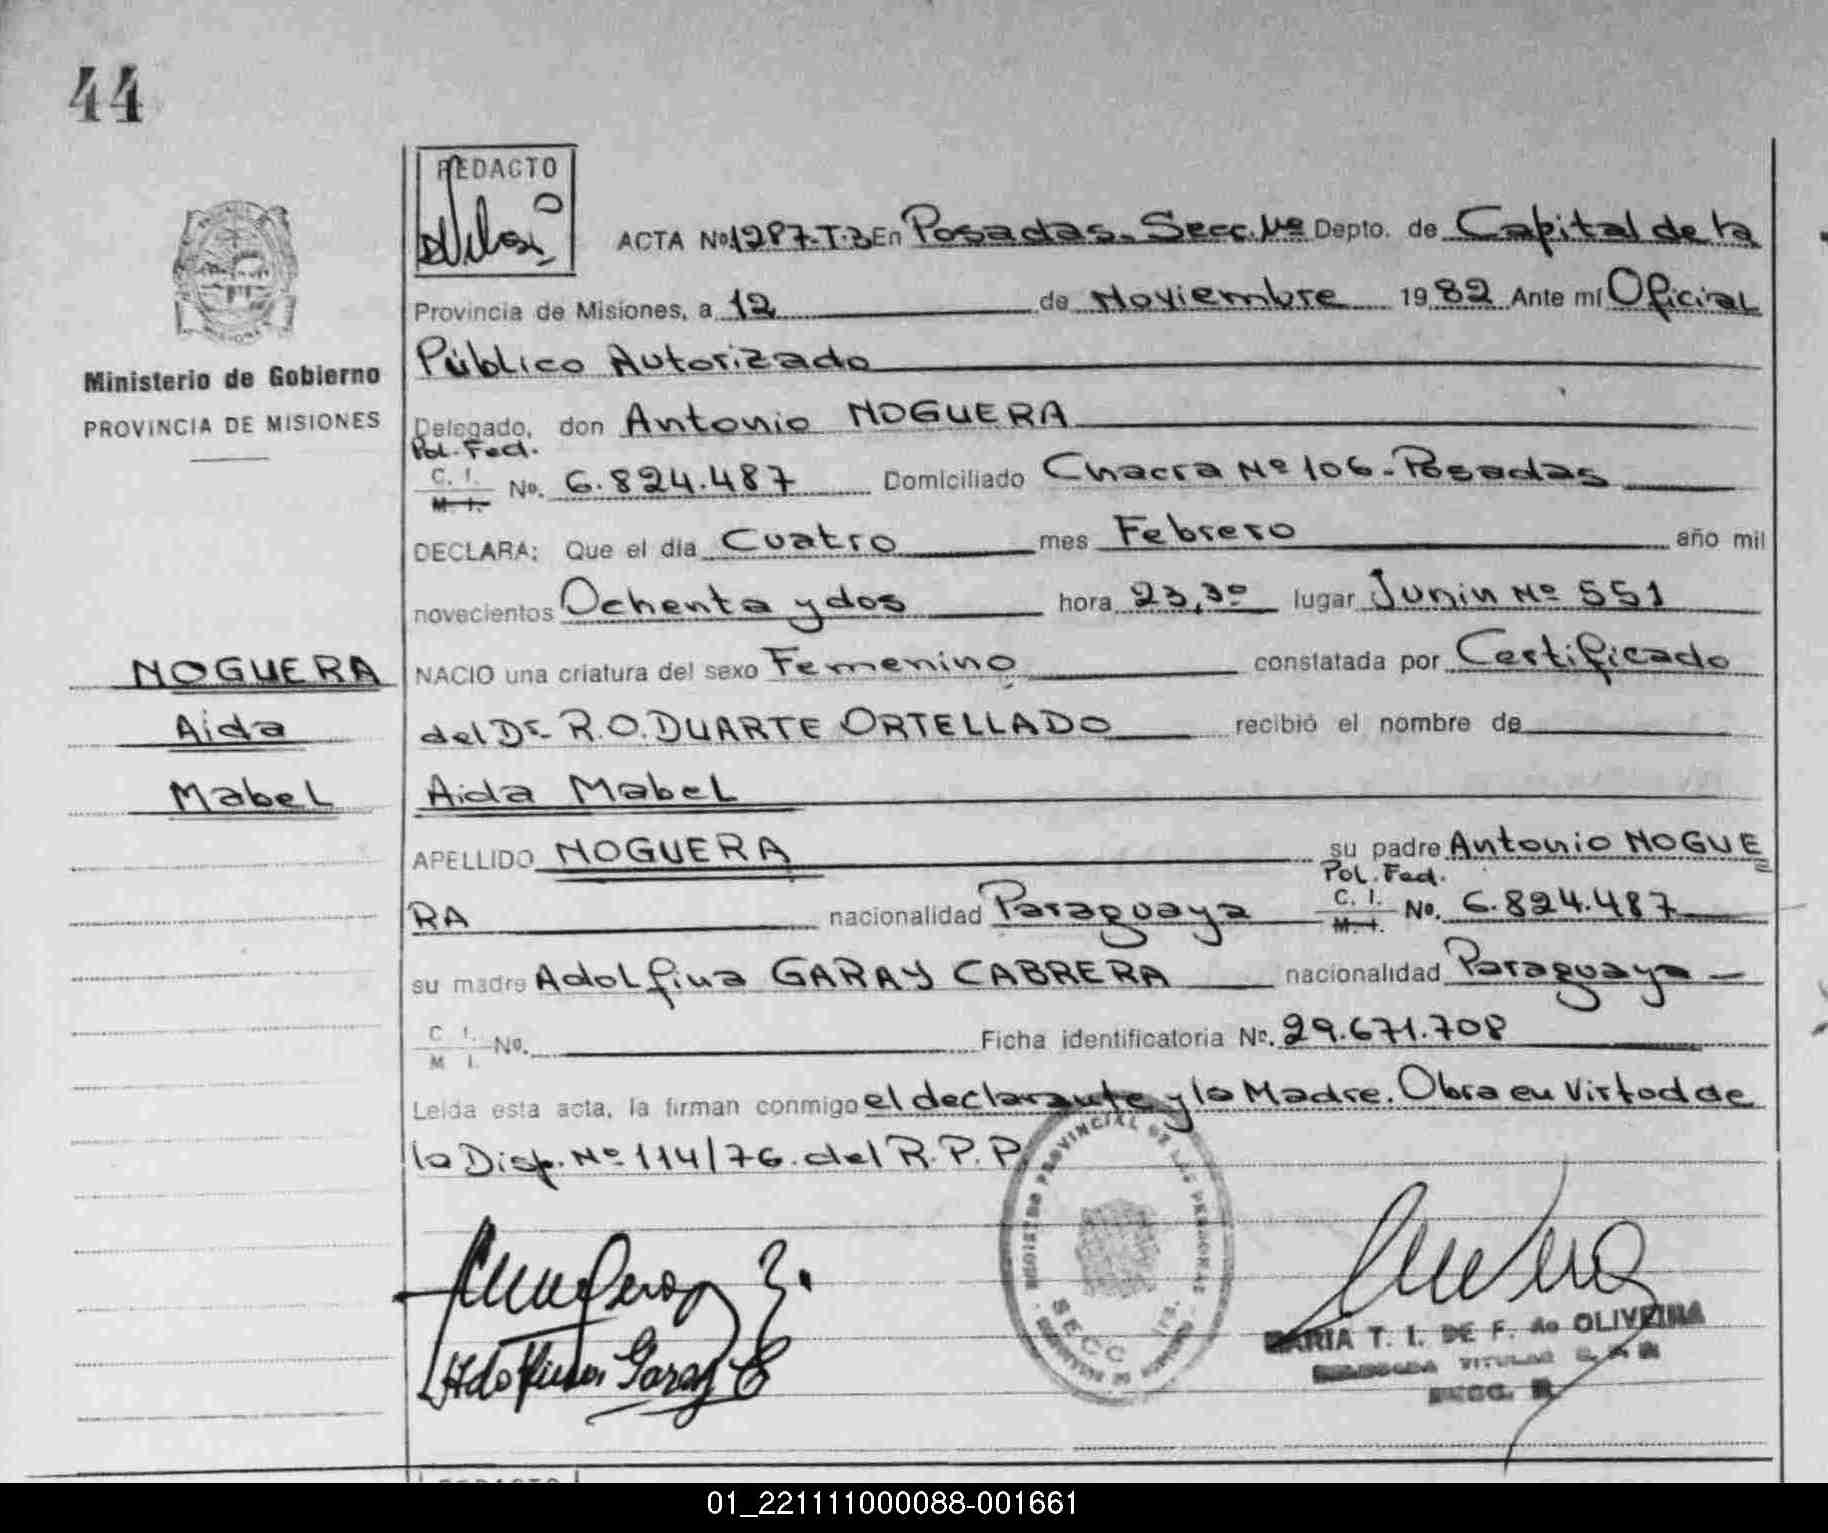 44
REDACTO
ACTA Nº 1287-T-3 En Posadas. Secc. Depto. de Capital de la
Provincia de Misiones, a 12 de Noviembre 1982 Ante mí Oficial
Público Autorizado
Ministerio de Gobierno
PROVINCIA DE MISIONES
Delegado, don Antonio NOGUERA
Pol. Fed.
C. I. M. I. No. 6.824.487 Domiciliado Chacra Nº 106-Posadas
DECLARA: Que el día Cuatro mes Febrero año mil
novecientos Ochenta y dos hora 23,30 lugar Junin Nº 551
NOGUERA
NACIO una criatura del sexo Femenino constatada por Certificado
Aida
del Dr. R.O. DUARTE ORTELLADO recibió el nombre de
Mabel
Aida Mabel
APELLIDO NOGUERA su padre Antonio NOGUE
Pol. Fed.
RA nacionalidad Paraguaya C. I. M. I. No. 6.824.487
su madre Adolfina GARAY CABRERA nacionalidad Paraguaya
C. I. M I. No. Ficha identificatoria Nº. 29.671.708
Leída esta acta, la firman conmigo el declarante y la Madre. Obra en Virtud de
la Disp. Nº 114/76. del R.P.P
REGISTRO PROVINCIAL DE LAS PERSONAS
SECC
Adolfina Garay C
MARIA T. I. DE F. de OLIVEIRA
TITULAR
SECC.
REDACTO
01_221111000088-001661